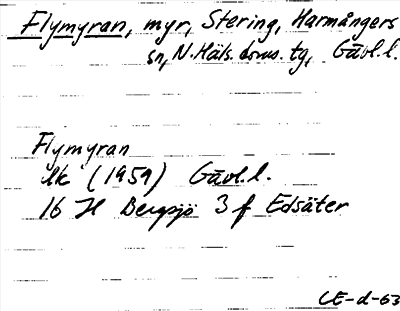 Flymyran, myr, Stering, Harmångers
sn, N. Häls. doms. tg, Gävl.l.
Flymyran
ek (1959) Gävl.l.
16 H Bergsjö 3 f Edsäter
CE-d-63